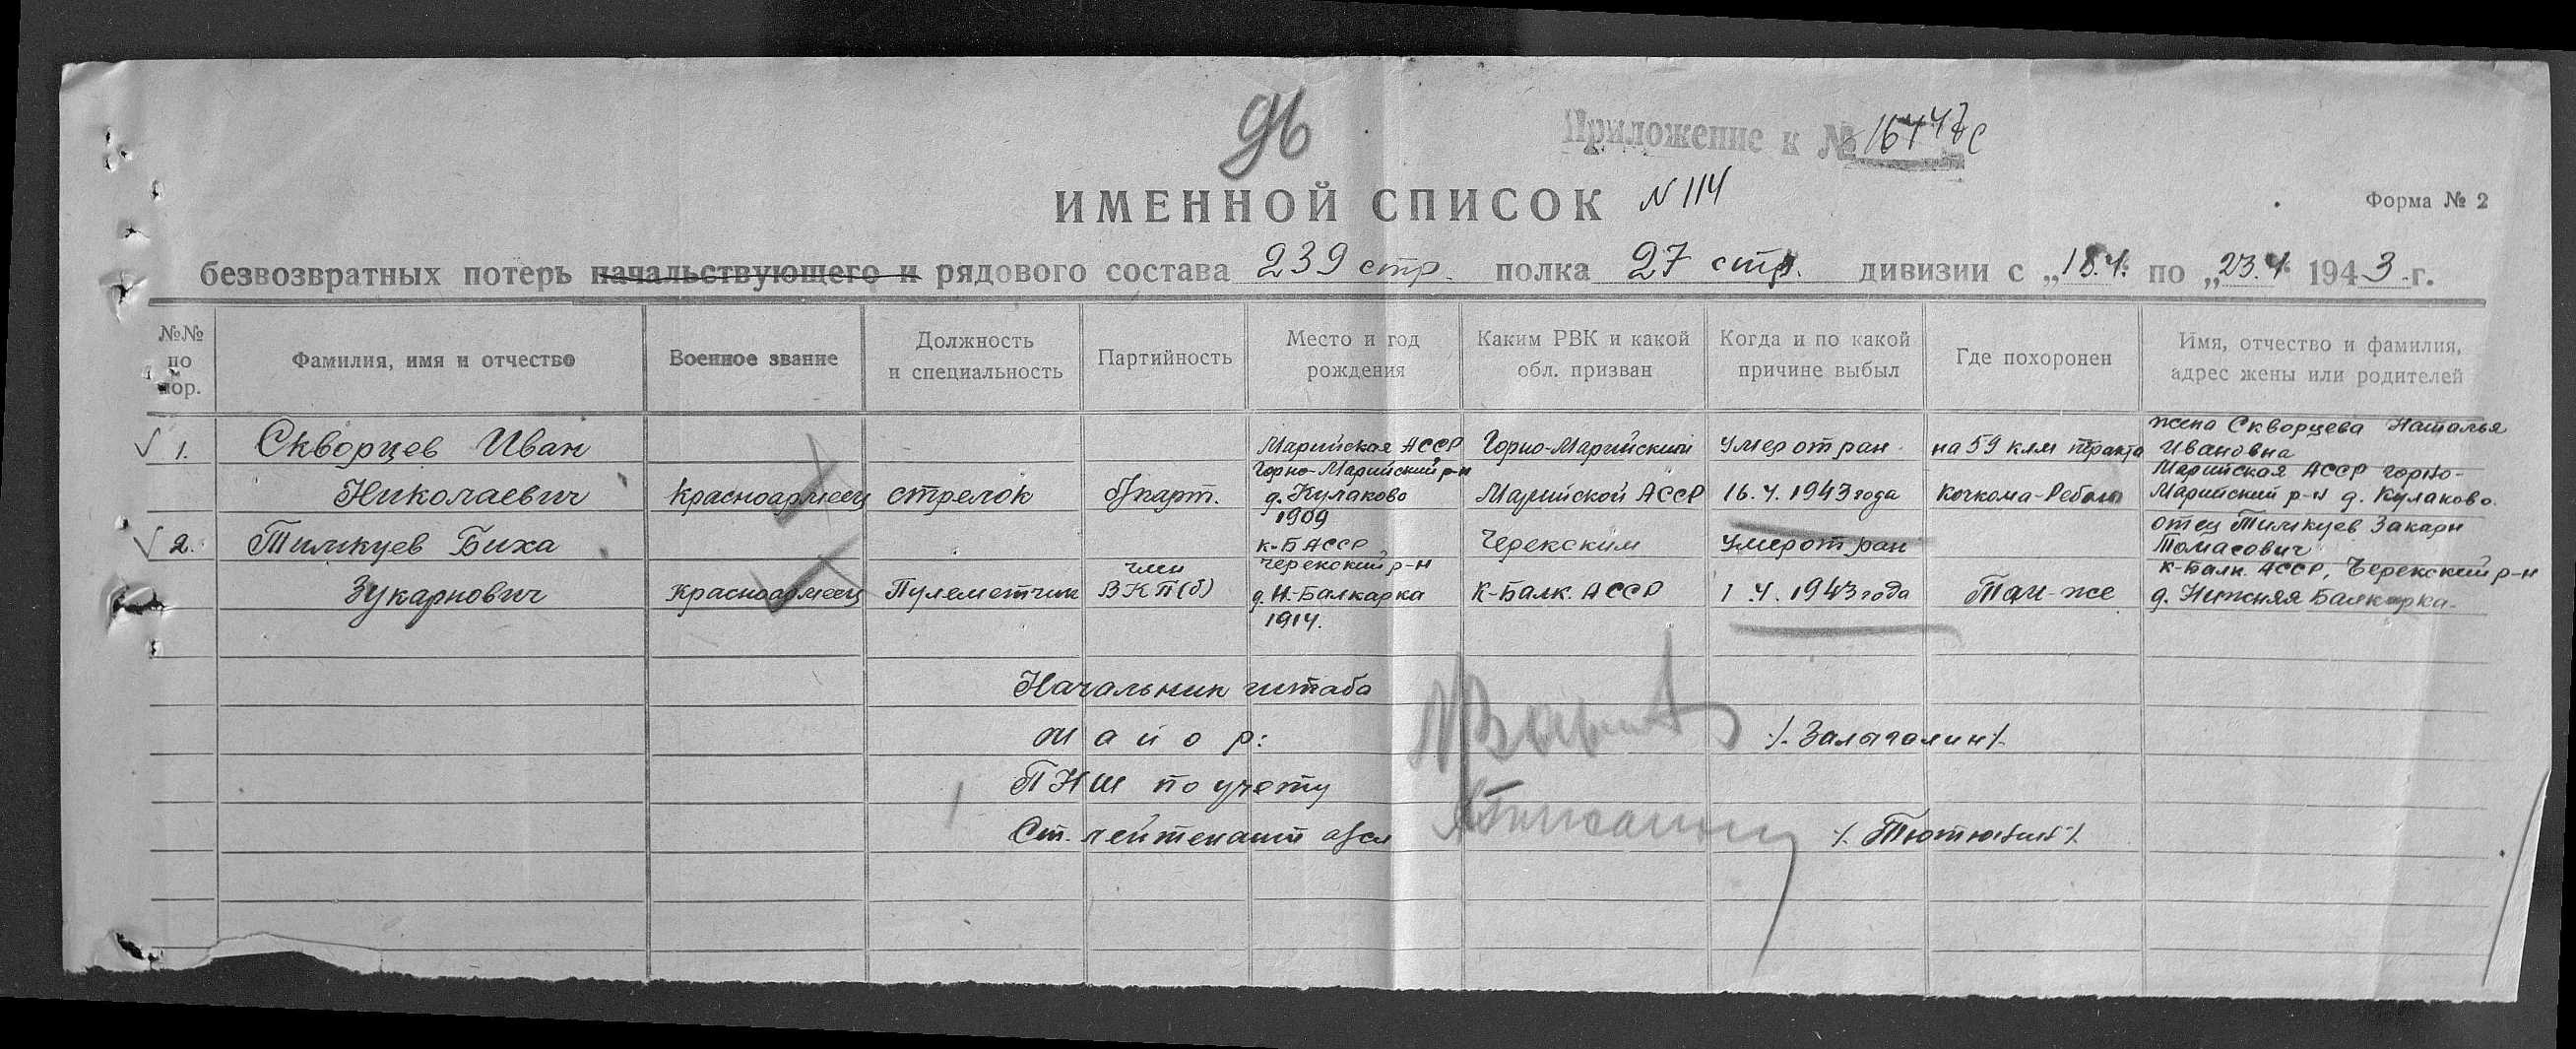 96
Приложение к № 16447с
ИМЕННОЙ СПИСОК N 114
Форма № 2
безвозвратных потерь начальствующего и рядового состава 239 стр. полка 27 стр. дивизии с „18.4. по „23.4 1943 г.
№№ по пор.
Фамилия, имя и отчество
Военное звание
Должность и специальность
Партийность
Место и год рождения
Каким РВК и какой обл. призван
Когда и по какой причине выбыл
Где похоронен
Имя, отчество и фамилия, адрес жены или родителей
1. Скворцев Иван Николаевич
Красноармеец
стрелок
б/парт.
Марийская АССР
Горно-Марийский р-н
д. Кулаково
1909
Горно-Марийский
Марийской АССР
Умер от ран
16.4.1943 года
на 59 клм тракта
Кочкома-Реболы
жена Скворцева Наталья
Ивановна
Марийская АССР Горно-
Марийский р-н д. Кулаково.
2. Тимкуев Биха
Зукарнович
Красноармеец
Пулеметчик
член
ВКП(б)
к-БАССР
Черекский р-н
д. Н-Балкарка
1914.
Черекским
К-Балк. АССР
Умер от ран
1.4.1943 года
Там-же
отец Тимкуев Закари
Томасович
К-Балк. АССР, Черекский р-н
д. Нижняя Балкарка.
Начальник штаба
майор:
/. Залыгалин /.
ПНШ по учету
Ст. лейтенант а/сл